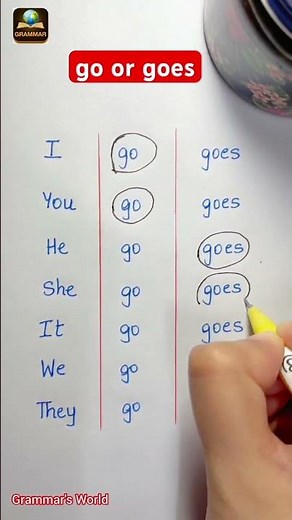 GRAMMAR
go or goes
I go goes
You go goes
He go goes
She go goes
It go goes
We go
They go
Grammar's World